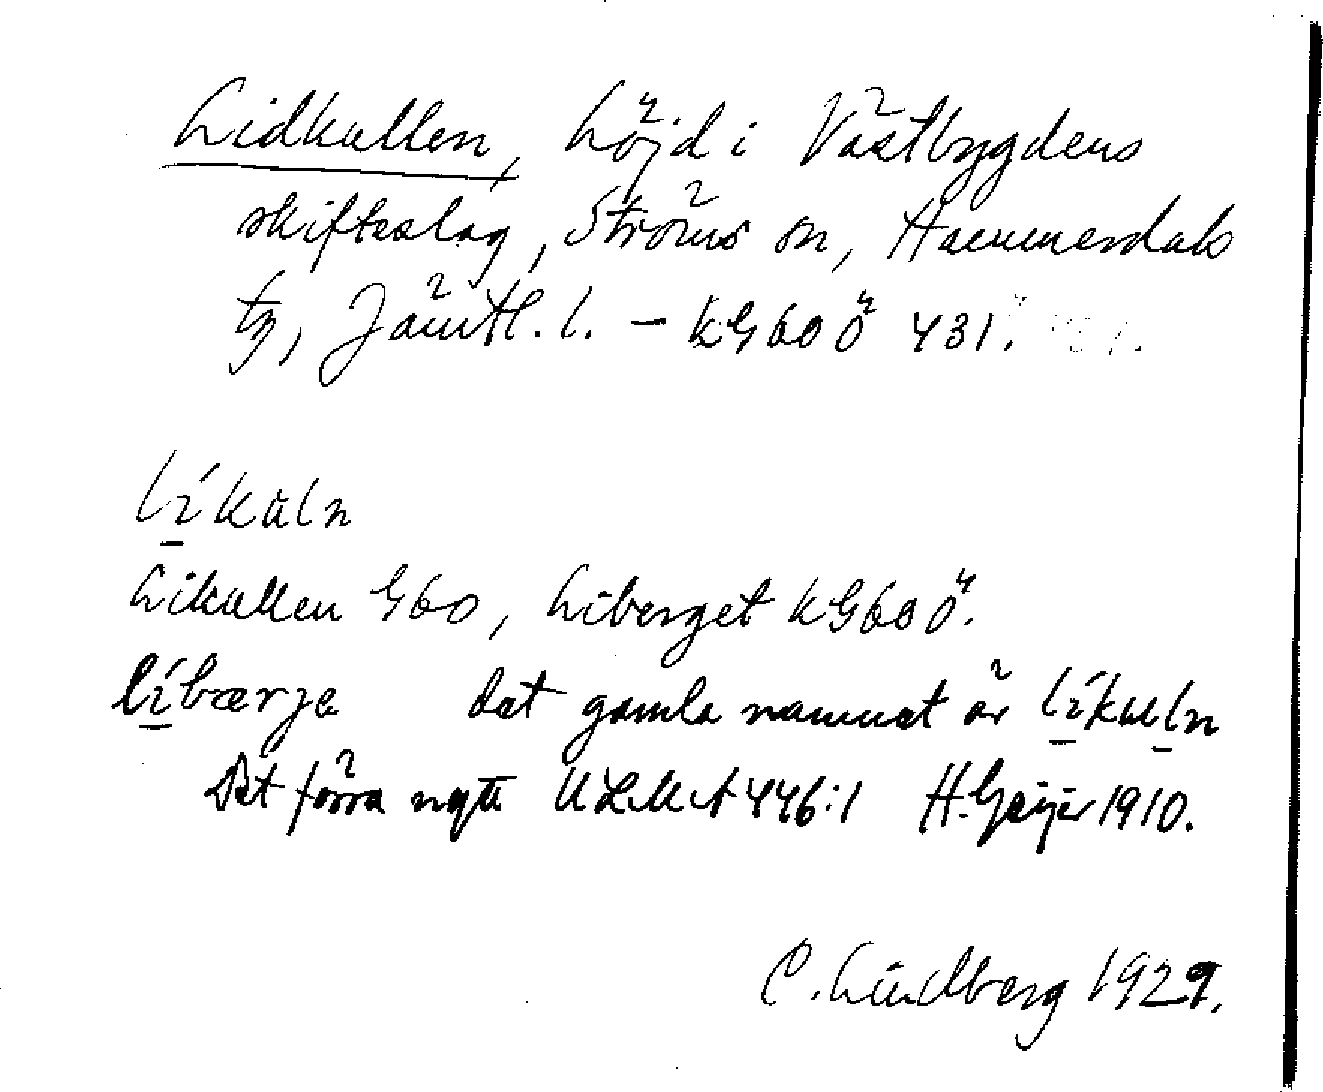 Lidkullen, höjd i Västbygdens
skifteslag, Ströms sn, Hammerdals
tg, Jämtl. l. – kG60Ö 431.
lı́kùln
Likullen G60, Liberget kG60Ö.
lı́bærje det gamla namnet är lı́kuln
Det förra nytt ULMA 446:1 H. Geijer 1910.
C. Lindberg 1929.